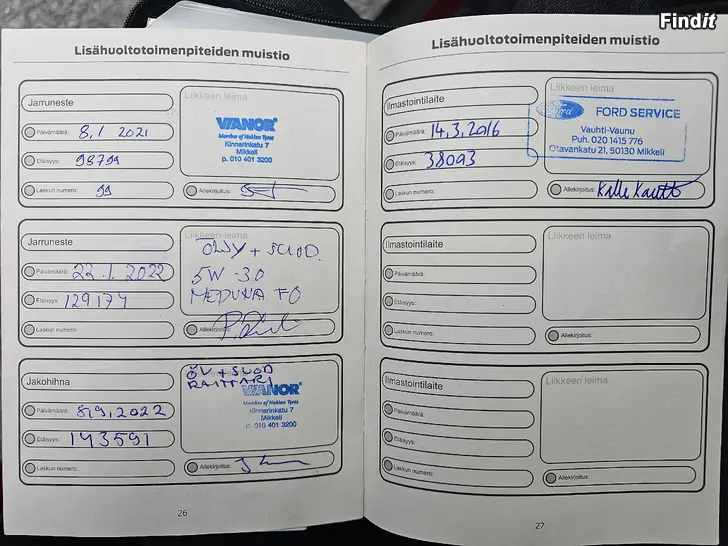 Findit
Lisähuoltotoimenpiteiden muistio
Jarruneste
Liikkeen leima
Päivämäärä: 8.1 2021
VIANOR
Member of Nokian Tyres
Kinnarinkatu 7
Mikkeli
p. 010 401 3200
Etäisyys: 98799
Laskun numero: 99
Allekirjoitus:
Jarruneste
Liikkeen leima
ÖLJY + SUOD.
5W-30
MEDUNA FO
Päivämäärä: 22.1.2022
Etäisyys: 129174
Laskun numero:
Allekirjoitus:
Jakohihna
ÖV + SUOD
RAITTARI
VIANOR
Member of Nokian Tyres
Kinnarinkatu 7
Mikkeli
p. 010 401 3200
Päivämäärä: 8.9.2022
Etäisyys: 143591
Laskun numero:
Allekirjoitus:
26
Lisähuoltotoimenpiteiden muistio
Ilmastointilaite
Liikkeen leima
Ford FORD SERVICE
Vauhti-Vaunu
Puh. 020 1415 776
Otavankatu 21, 50130 Mikkeli
Päivämäärä: 14.3.2016
Etäisyys: 38093
Laskun numero:
Allekirjoitus: Kalle Kautto
Ilmastointilaite
Liikkeen leima
Päivämäärä:
Etäisyys:
Laskun numero:
Allekirjoitus:
Ilmastointilaite
Liikkeen leima
Päivämäärä:
Etäisyys:
Laskun numero:
Allekirjoitus:
27